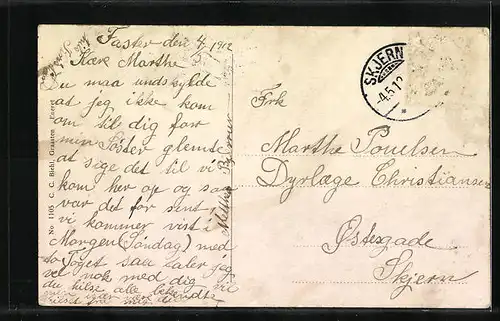 Faster den 4/5 1912
Kære Marthe
Du maa undskylde
at jeg ikke kom
om til dig for
min Søster glemte
at sige det til vi
kom her op og saa
var det for sent
vi kommer vist i
Morgen (Søndag) med
to Toget saa taler jeg
vel nok med dig vil
du hilse alle bekendte
hilset fra
No 1105 C. C. Biehl, Graasten Eneret
SKJERN
4.5.12
Frk
Marthe Poulsen
Dyrlæge Christiansen
Østergade
Skjern